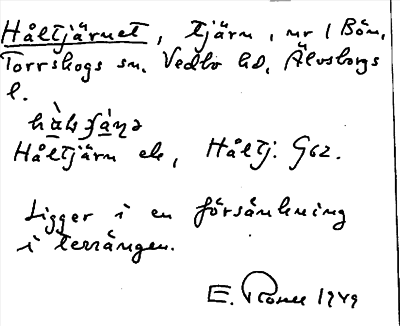 Håltjärnet, tjärn, nr 1 Bön,
Torrskogs sn. Vedbo hd, Älvsborgs
l.
Håltjärn ek, Håltj. G62.
Ligger i en försänkning
i terrängen.
E. Rosell 1949